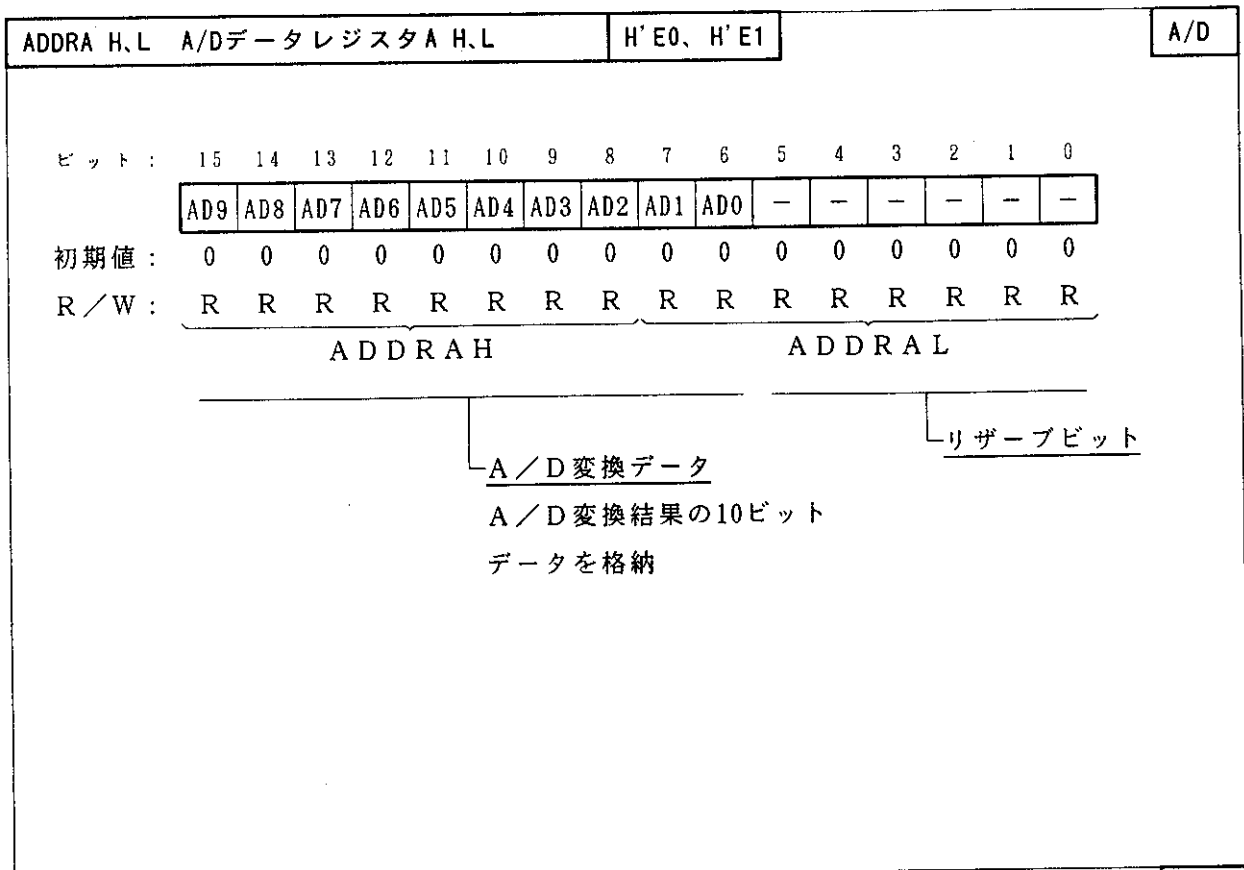 ADDRA H、L A/DデータレジスタA H、L H'E0、H'E1 A/D
ビット： 15 14 13 12 11 10 9 8 7 6 5 4 3 2 1 0
AD9 AD8 AD7 AD6 AD5 AD4 AD3 AD2 AD1 AD0 － － － － － －
初期値： 0 0 0 0 0 0 0 0 0 0 0 0 0 0 0 0
R／W： R R R R R R R R R R R R R R R R
ADDRAH ADDRAL
リザーブビット
A／D変換データ
A／D変換結果の10ビット
データを格納